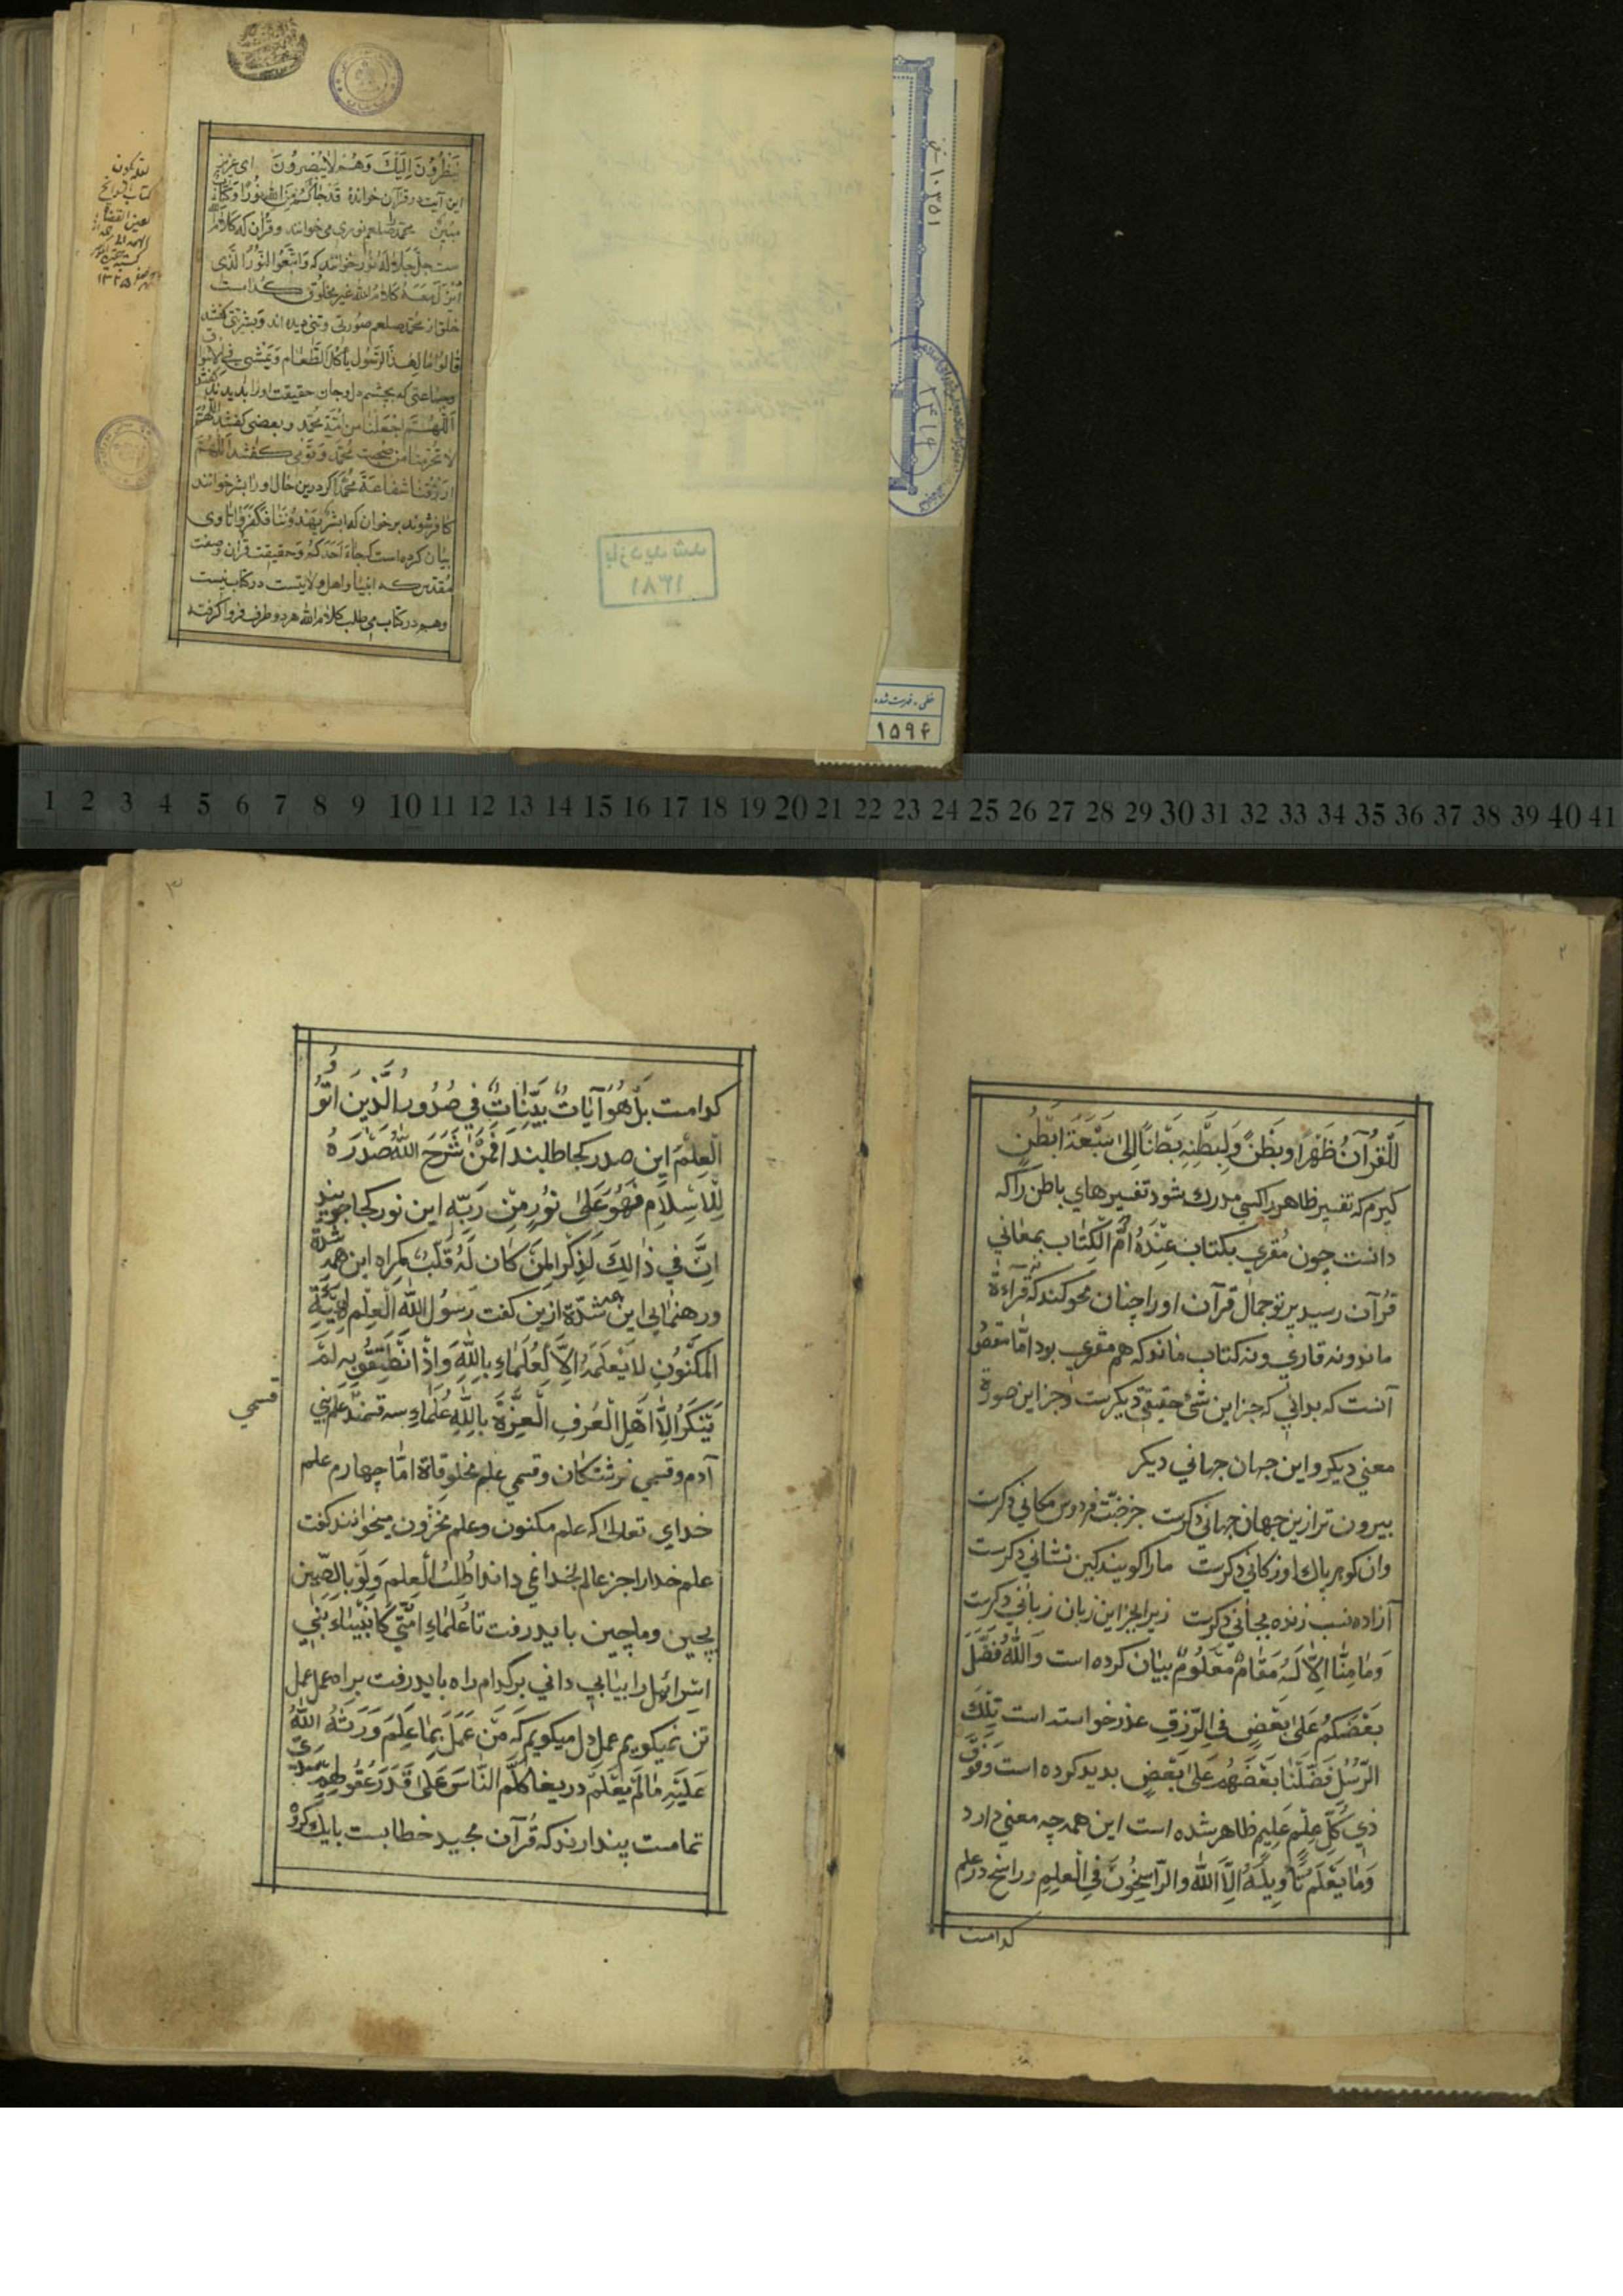 ینظرون الیك وهم لا یبصرون ای عزیز
این آیت در قرآن خوانده قد جاکم من الله نور وکتاب
مبین محمد صلعم نوری می خوانند و قرآن که کلام الله
ست جل جلاله نور خوانند که واتبعوا النور الذی
انزل معه کلام الله غیر مخلوق کدامست
خلق از محمد صلعم صورتی وتنی دیده اند و بشریتی گفتند
قالوا ما لهذا الرسول یأکل الطعام ویمشی فی الاسواق
وجماعتی که بچشم دل وجان حقیقت اورا بدیدند گفتند
اللهم اجعلنا من امة محمد و بعضی گفتند اللهم
لا تحرمنا من صحبت محمد وقومی گفتند اللهم
ارزقنا شفاعة محمد اگر درین حال اورا بشر خوانند
کافر شوند برخوان که ابشر یهدوننا فکفروا تا وی
بیان کرده است که
مقدس که انبیا و اهل ولایتست در کتاب نیست
وهم در کتاب می طلب کلام الله هر دو طرف فرو گرفته
بازدید شد
۱۳۸۱
۱۰۳۵۱
۲۴۱۴
خطی - فهرست شده
۱۵۹۴
1 2 3 4 5 6 7 8 9 10 11 12 13 14 15 16 17 18 19 20 21 22 23 24 25 26 27 28 29 30 31 32 33 34 35 36 37 38 39 40 41
۲
للقرآن ظهرا وبطن ولبطنه بطنا الی سبعة ابطن
گیرم که تفسیر ظاهر را کسی مدرك شود تفسیرهای باطن را که
دانست چون مقری بکتاب عنده ام الکتاب بمعانی
قرآن رسید پرتو جمال قرآن اورا چنان محو کند که نه قراءة
ماند ونه قاری ونه کتاب ماند که هم مقری بود اما مقصود
آنست که بدانی که جز این شئ حقیقتی دیگرست و جز این صورة
معنی دیگر و این جهان جهانی دیگر
بیرون تر ازین جهان جهانی دگرست جز جنّت فردوس مکانی دگرست
وان گوهر پاك اوز کانی دگرست مارا گویند کین نشانی دگرست
آزاده نسب زنده بجانی دگرست زیرا بجز این زبان زبانی دگرست
وما منا الا له مقام معلوم بیان کرده است والله فضل
بعضکم علی بعض فی الرزق عذر خواسته است تلك
الرسل فضلنا بعضهم علی بعض بدید کرده است وفوق
ذی کل علم علیم ظاهر شده است این همه چه معنی دارد
وما یعلم تأویله الا الله والراسخون فی العلم وراسخ در علم
کدامست
۳
کدامست بل هو آیات بینات فی صدور الذین اوتوا
العلم این صدر کجا طلبند افمن شرح الله صدره
للاسلام فهو علی نور من ربه این نور کجا جویند
ان فی ذالك لذکرا لمن کان له قلب گمراه این همه شدة
ورهنمایی این همه شدة ازین گفت رسول الله العلم کهیئة
المکنون لا یعلمه الا لعلماء بالله واذا نطقو به لم
ینکر الا اهل العرف العزة بالله علماء سه قسمند علم بنی
قسمی
آدم وقسمی فرشتکان وقسمی علم مخلوقاة اما چهارم علم
خدای تعالی که علم مکنون وعلم مخزون میخوانند گفت
علم خدا را جز عالم بخدا نمی داند اطلب العلم ولو بالصین
بچین وماچین باید رفت تا علماء امتی کانبیاء بنی
اسرائیل را بیابی دانی بر کدام راه باید رفت براه عمل عمل
تن نمیگویم عمل دل میگویم که من عمل بما علم ورثه الله
علیه ما لم یعلم دریغا کلم الناس علی قدر عقولهم
تمامست پندارند که قرآن مجید خطابست بایك گروه